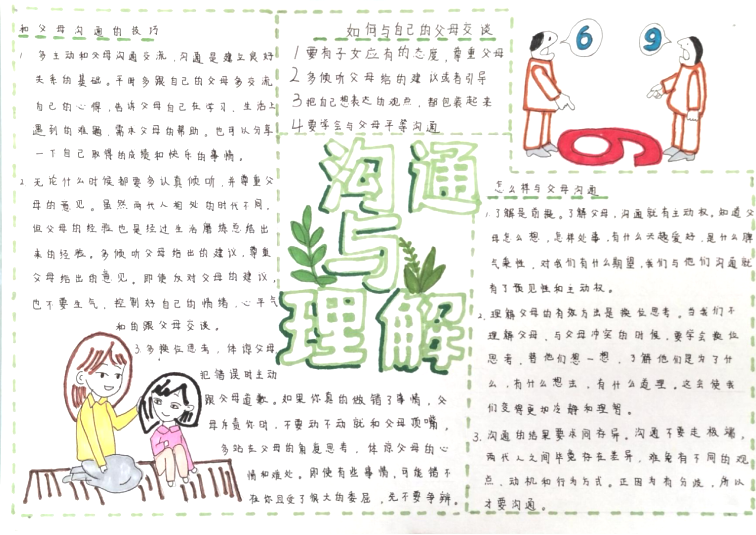 和父母沟通的技巧
1. 多主动和父母沟通交流，沟通是建立良好
关系的基础。平时多跟自己的父母多交流
自己的心得，告诉父母自己在学习、生活上
遇到的难题，需求父母的帮助。也可以分享
一下自己取得的成绩和快乐的事情。
2. 无论什么时候都要多认真倾听，并尊重父
母的意见。虽然两代人相处的时代不同，
但父母的经验也是经过生活磨练总结出
来的经验。多倾听父母给出的建议，尊重
父母给出的意见。即使反对父母的建议，
也不要生气，控制好自己的情绪，心平气
和的跟父母交谈。
3. 多换位思考，体谅父母
犯错误时主动
跟父母道歉。如果你真的做错了事情，父
母斥责你时，不要动不动就和父母顶嘴。
多站在父母的角度思考，体谅父母的心
情和难处。即使有些事情，可能错不
在你且受了很大的委屈，先不要争辩。
如何与自己的父母交谈
1 要有子女应有的态度，尊重父母
2 多倾听父母给的建议或者引导
3 把自己想表达的观点，都包装起来
4 要学会与父母平等沟通
沟通
与
理解
6
9
6
怎么样与父母沟通
1. 了解是前提。了解父母，沟通就有主动权。知道父
母怎么想，怎样处事，有什么兴趣爱好，是什么脾
气秉性，对我们有什么期望，我们与他们沟通就
有了预见性和主动权。
2. 理解父母的有效方法是换位思考。当我们不
理解父母，与父母冲突的时候，要学会换位
思考，替他们想一想，了解他们是为了什
么，有什么想法，有什么道理。这会使我
们变得更加冷静和理智。
3. 沟通的结果要求同存异。沟通不要走极端，
两代人之间毕竟存在差异，难免有不同的观
点、动机和行为方式。正因为有分歧，所以
才要沟通。